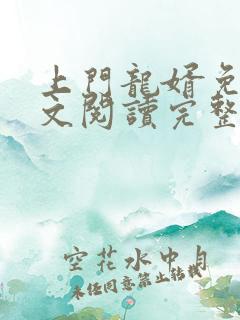 上門龍婿免
文閱讀完整
空花水中月
未经同意禁止转载